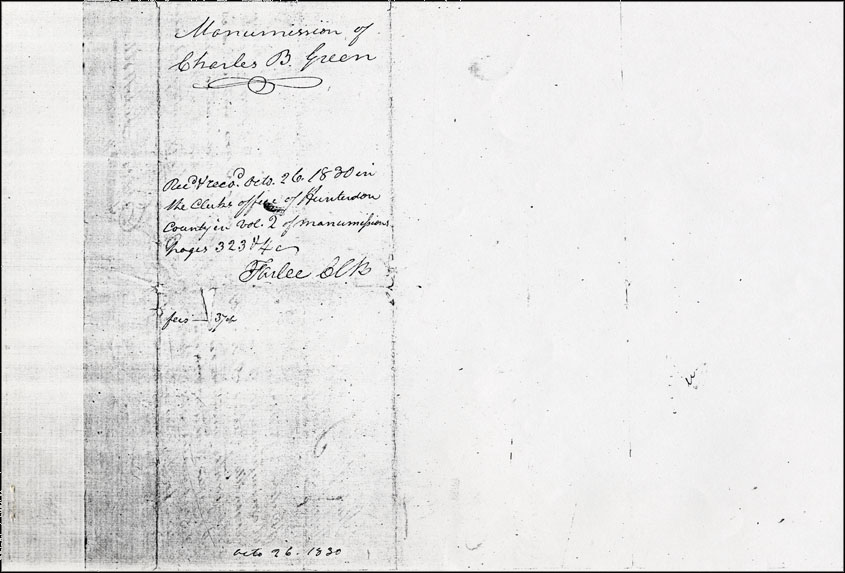 Manumission of
Charles B. Green
Rec'd & reco'd. Octo. 26. 1830 in
the Clerks office of Hunterdon
County in Vol. 2 of manumissions
pages 323 & 4
Farlee Clk
fees
Octo 26. 1830